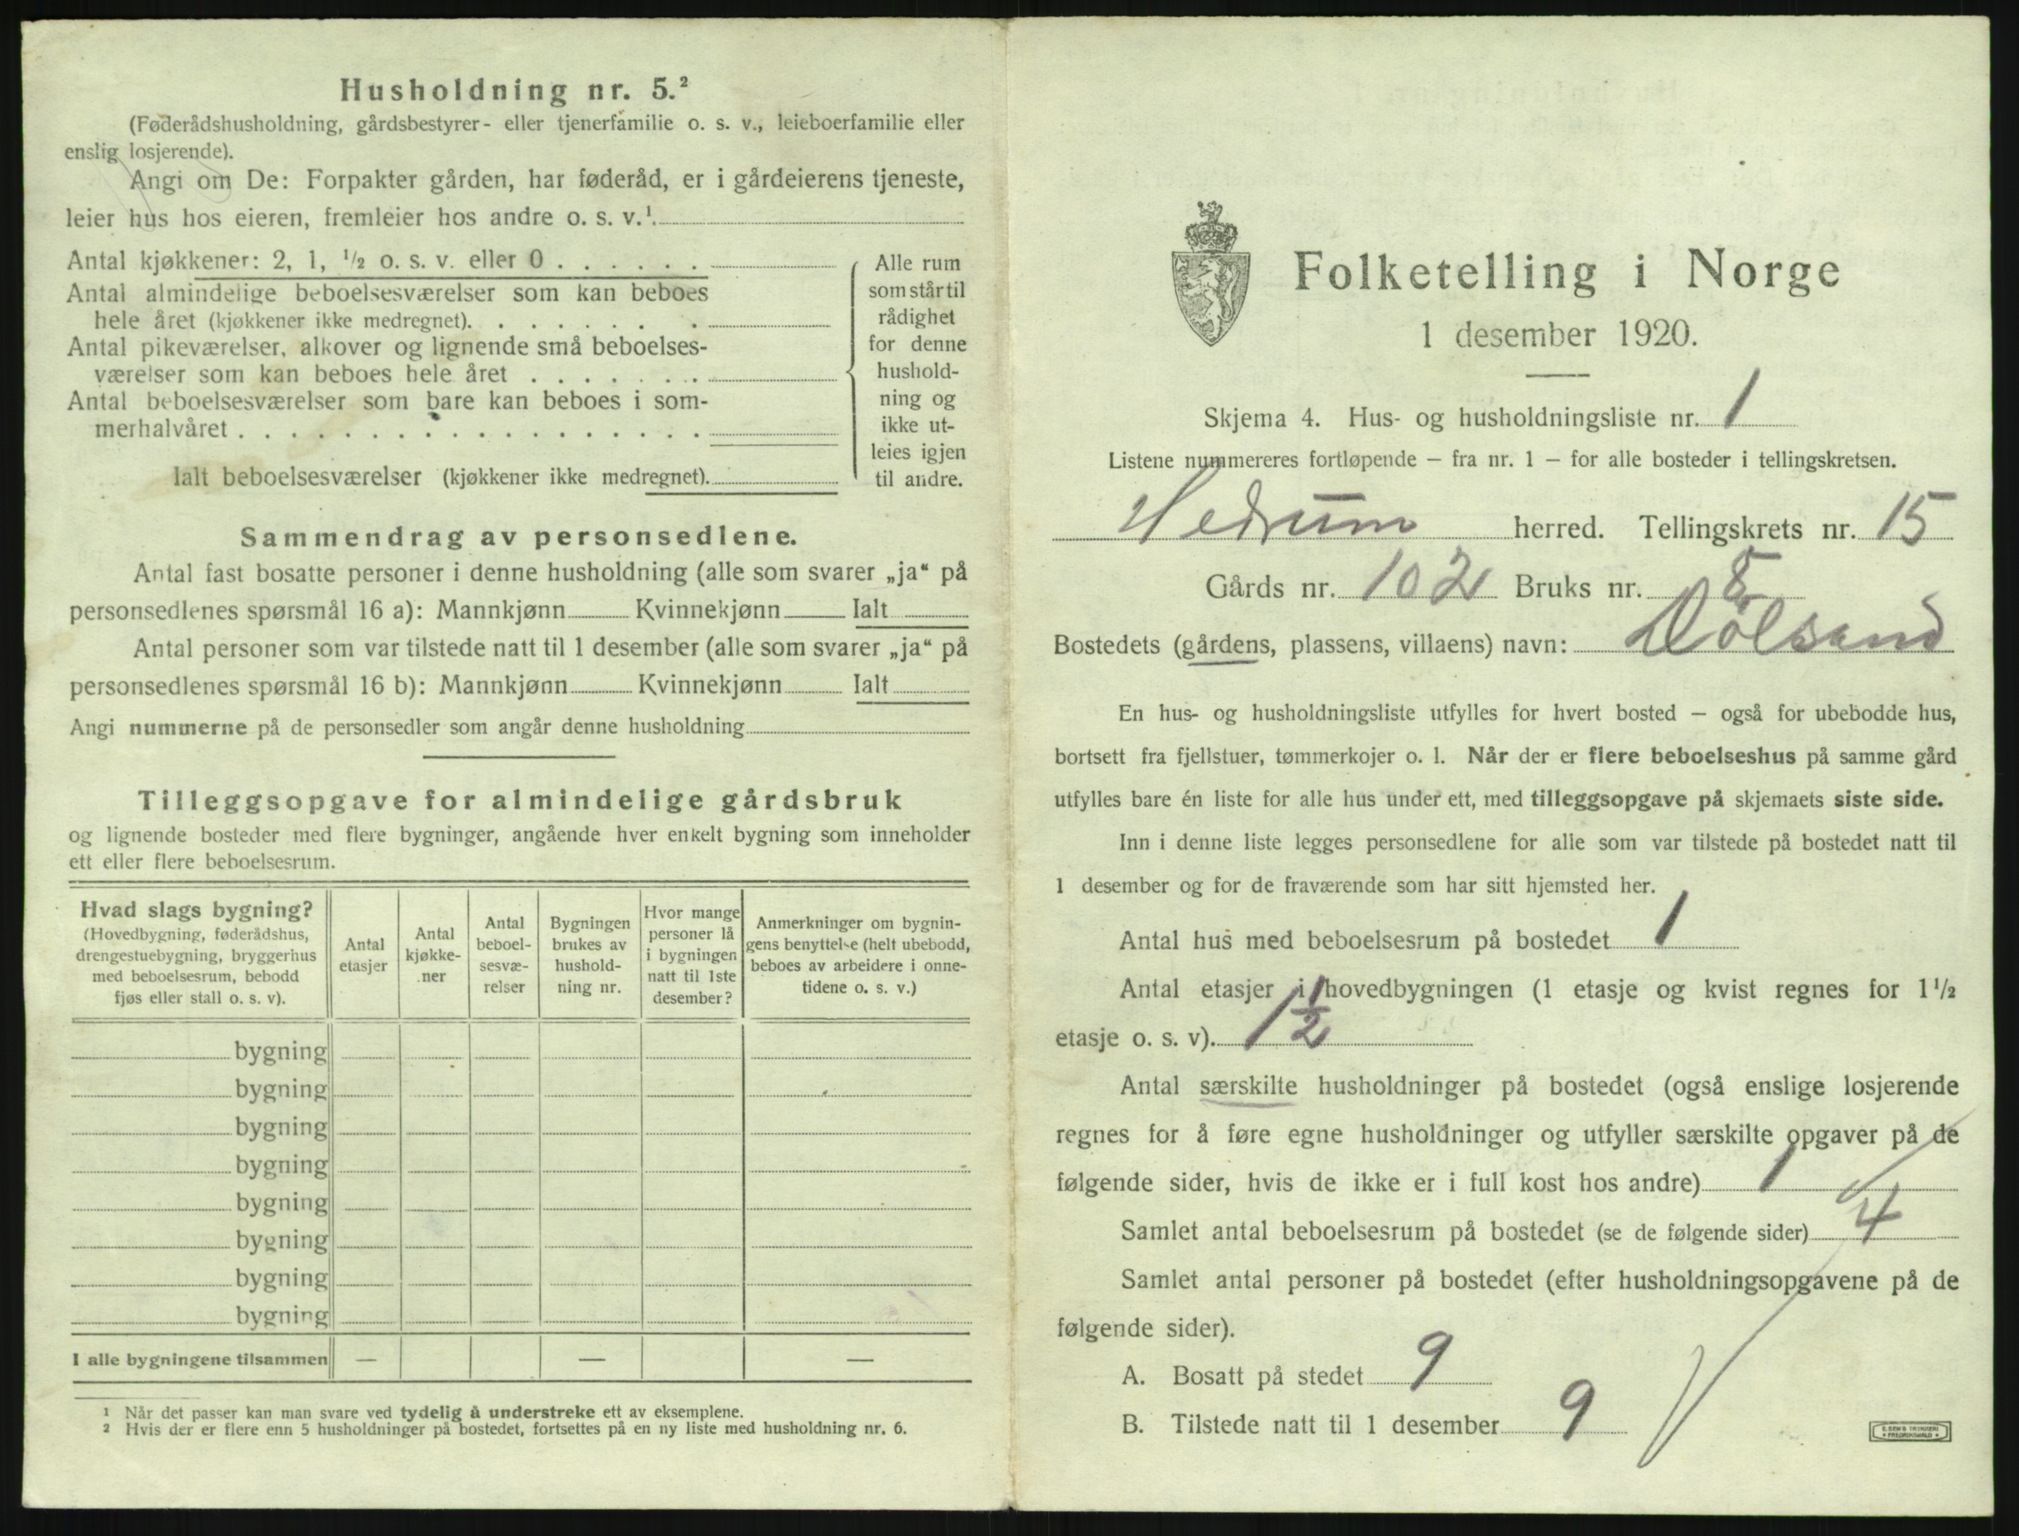 Husholdning nr. 5.²
(Føderådshusholdning, gårdsbestyrer- eller tjenerfamilie o. s. v., leieboerfamilie eller
enslig losjerende).
Angi om De: Forpakter gården, har føderåd, er i gårdeierens tjeneste,
leier hus hos eieren, fremleier hos andre o. s. v.¹
Antal kjøkkener: 2, 1, ½ o. s. v. eller 0 . . . . . .
Antal almindelige beboelsesværelser som kan beboes
hele året (kjøkkener ikke medregnet). . . . . . . .
Antal pikeværelser, alkover og lignende små beboelses-
værelser som kan beboes hele året . . . . . . .
Antal beboelsesværelser som bare kan beboes i som-
merhalvåret . . . . . . . . . . . . . . . . . .
Ialt beboelsesværelser (kjøkkener ikke medregnet).
Alle rum
som står til
rådighet
for denne
hushold-
ning og
ikke ut-
leies igjen
til andre.
Sammendrag av personsedlene.
Antal fast bosatte personer i denne husholdning (alle som svarer „ja“ på
personsedlenes spørsmål 16 a): Mannkjønn Kvinnekjønn Ialt
Antal personer som var tilstede natt til 1 desember (alle som svarer „ja“ på
personsedlenes spørsmål 16 b): Mannkjønn Kvinnekjønn Ialt
Angi nummerne på de personsedler som angår denne husholdning
Tilleggsopgave for almindelige gårdsbruk
og lignende bosteder med flere bygninger, angående hver enkelt bygning som inneholder
ett eller flere beboelsesrum.
Hvad slags bygning?
(Hovedbygning, føderådshus,
drengestuebygning, bryggerhus
med beboelsesrum, bebodd
fjøs eller stall o. s. v).
Antal
etasjer
Antal
kjøkke-
ner
Antal
beboel-
sesvæ-
relser
Bygningen
brukes av
hushold-
ning nr.
Hvor mange
personer lå
i bygningen
natt til 1ste
desember?
Anmerkninger om bygnin-
gens benyttelse (helt ubebodd,
beboes av arbeidere i onne-
tidene o. s. v.)
bygning
bygning
bygning
bygning
bygning
bygning
bygning
bygning
I alle bygningene tilsammen — — —
¹ Når det passer kan man svare ved tydelig å understreke ett av eksemplene.
² Hvis der er flere enn 5 husholdninger på bostedet, fortsettes på en ny liste med husholdning nr. 6.
Folketelling i Norge
1 desember 1920.
Skjema 4. Hus- og husholdningsliste nr. 1
Listene nummereres fortløpende – fra nr. 1 – for alle bosteder i tellingskretsen.
Hedrum herred. Tellingskrets nr. 15
Gårds nr. 102 Bruks nr. 8
Bostedets (gårdens, plassens, villaens) navn: Dølsand
En hus- og husholdningsliste utfylles for hvert bosted – også for ubebodde hus,
bortsett fra fjellstuer, tømmerkojer o. l. Når der er flere beboelseshus på samme gård
utfylles bare én liste for alle hus under ett, med tilleggsopgave på skjemaets siste side.
Inn i denne liste legges personsedlene for alle som var tilstede på bostedet natt til
1 desember og for de fraværende som har sitt hjemsted her.
Antal hus med beboelsesrum på bostedet 1
Antal etasjer i hovedbygningen (1 etasje og kvist regnes for 1½
etasje o. s. v). 1½
Antal særskilte husholdninger på bostedet (også enslige losjerende
regnes for å føre egne husholdninger og utfyller særskilte opgaver på de
følgende sider, hvis de ikke er i full kost hos andre) 1
Samlet antal beboelsesrum på bostedet (se de følgende sider) 4
Samlet antal personer på bostedet (efter husholdningsopgavene på de
følgende sider).
A. Bosatt på stedet 9
B. Tilstede natt til 1 desember 9